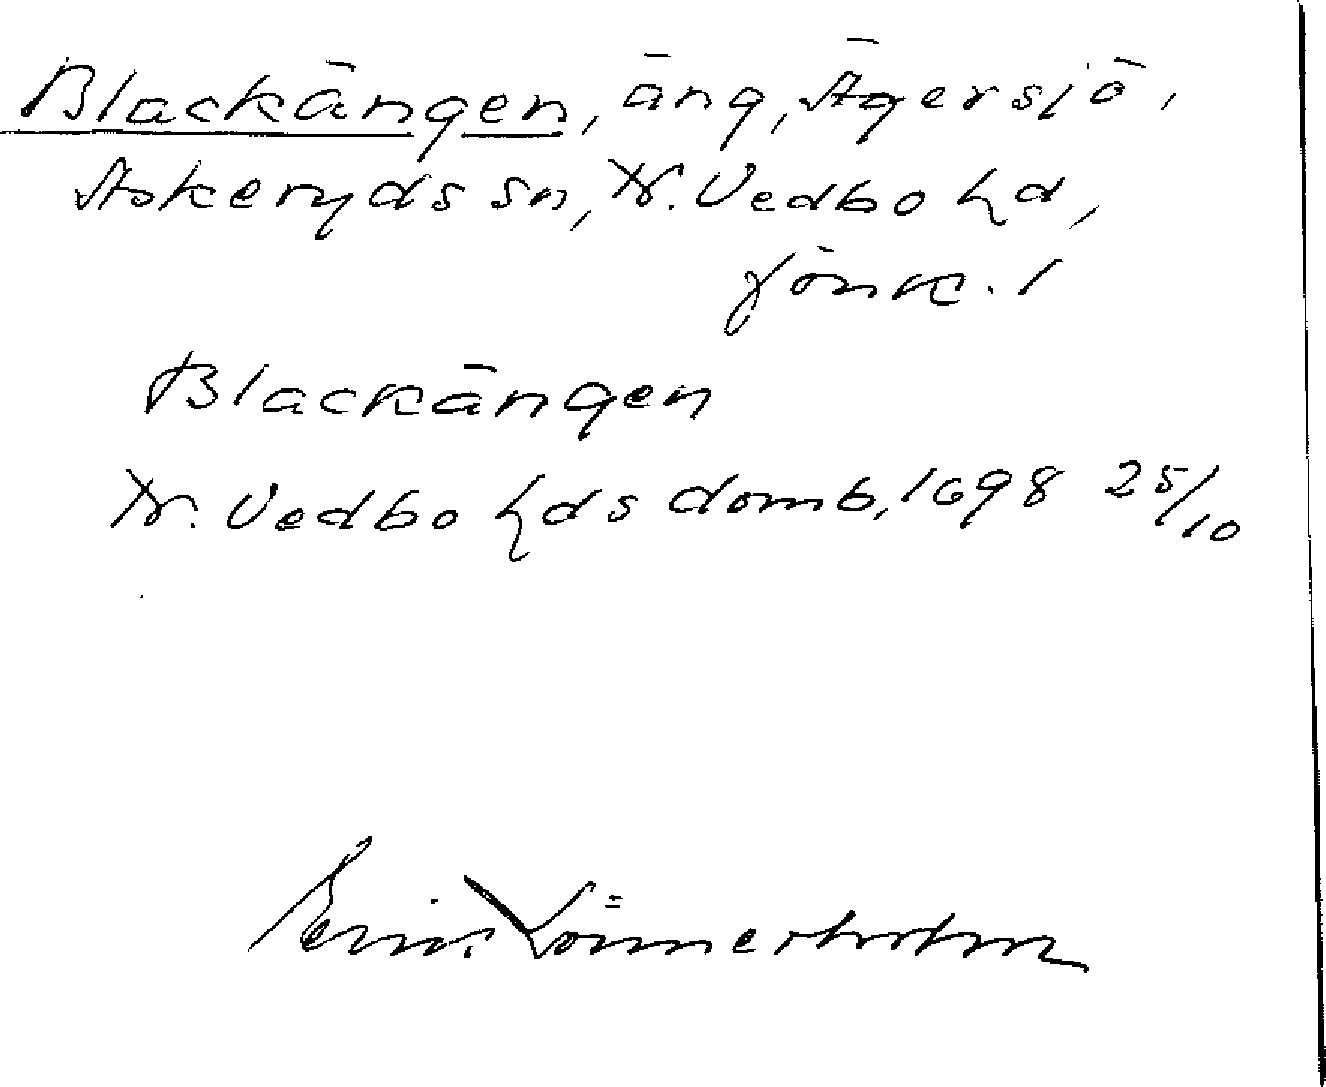 Blackängen, äng, Ägersjö,
Askeryds sn, N. Vedbo hd,
Jönk. l
Blackängen
N. Vedbo hds domb, 1698 25/10
Linnerholm